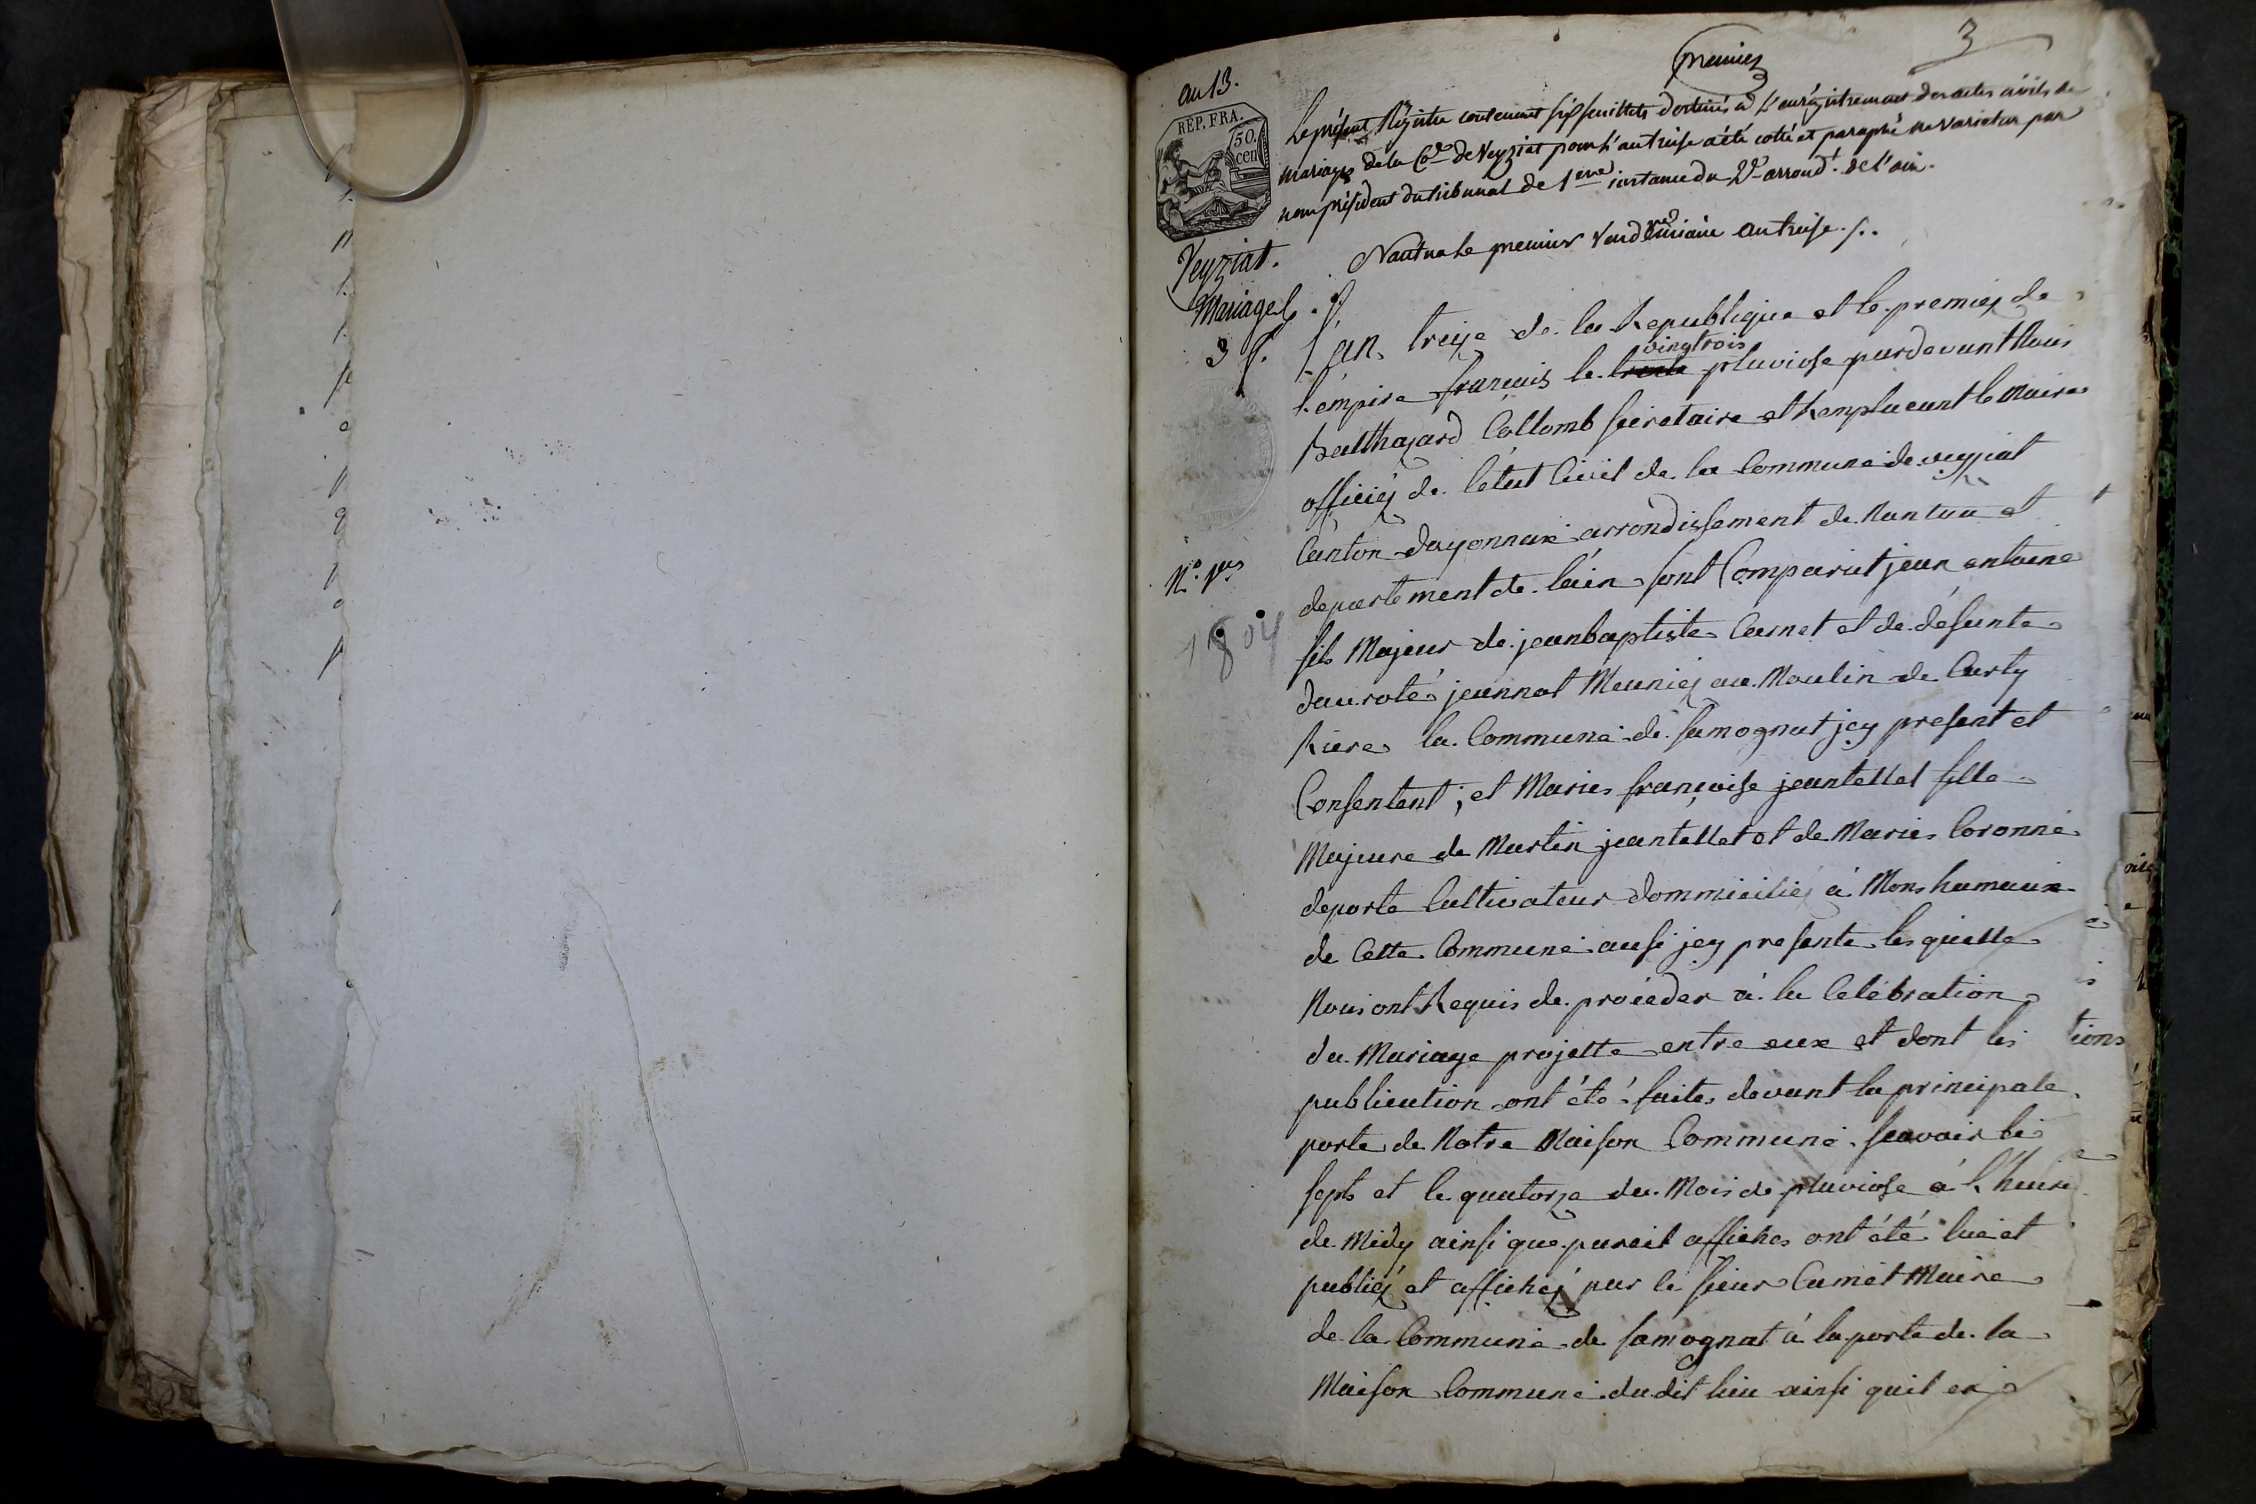 premier
3
an 13.
REP. FRA.
50.
cen
Le présent Régistre contenant six feuillets destinés à l'enrégistrement des actes civils de
mariages de la Cne de Veyziat pour l'an treize a été cotté et paraphé ne varietur par
nous président du tribunal de 1ere instance du 2e arrond.t de l'ain.
Nantua le premier Vendémiaire an treize ./.
Veyziat.
Mariages
3 f.
L'an treize de la Republique et le premier de
l'empire francais le trente vingtrois pluviose pardevant Nous
Balthazard Collomb secretaire et Remplacant le Maire
officiez de létat Civil de la Commune de veyziat
Canton doyonnax arrondissement de Nantua et
departement de lain sont Comparut jean antoine
N.° 1er
1804
fils Majeur de jeanbaptiste Carnet et de défunte
jeannet Meuniez au Moulin de Charty
Riere la Commune de samognat jcy present et
Consentent; et Marie françoise jeantellet fille
Majeure de Martin jeantellet et de Marie Coronne
deporte Cultivateur dommicilié à Mons hameaux
de Cette Commune ausi jcy presente lesquelle
Nous ont Requis de proceder à la Celebration
du Mariage projette entre eux et dont les
publication ont été faites devant la principale
porte de Notre Maison Commune scavoir le
sept et le quatorze du Mois de pluviose à l'heure
de Midy ainsi que pareil affiches ont été lue et
publiéz et affichéz par le sieur Carnet Maire
de la Commune de samognat à la porte de la
Maison Commune dudit lieu ainsi quil en
tions